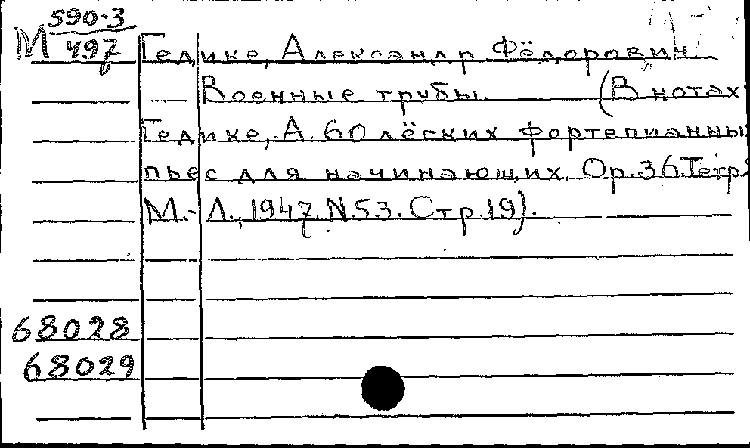 590-3
М 497 Гедике, Александр Фёдорович
Военные трубы (В нотах
Гедике, А. 60 лёгких фортепианны
пьес для начинающих. Ор.36.Тетр.
М.-Л., 1947. N.53. Стр.19).
68028
68029